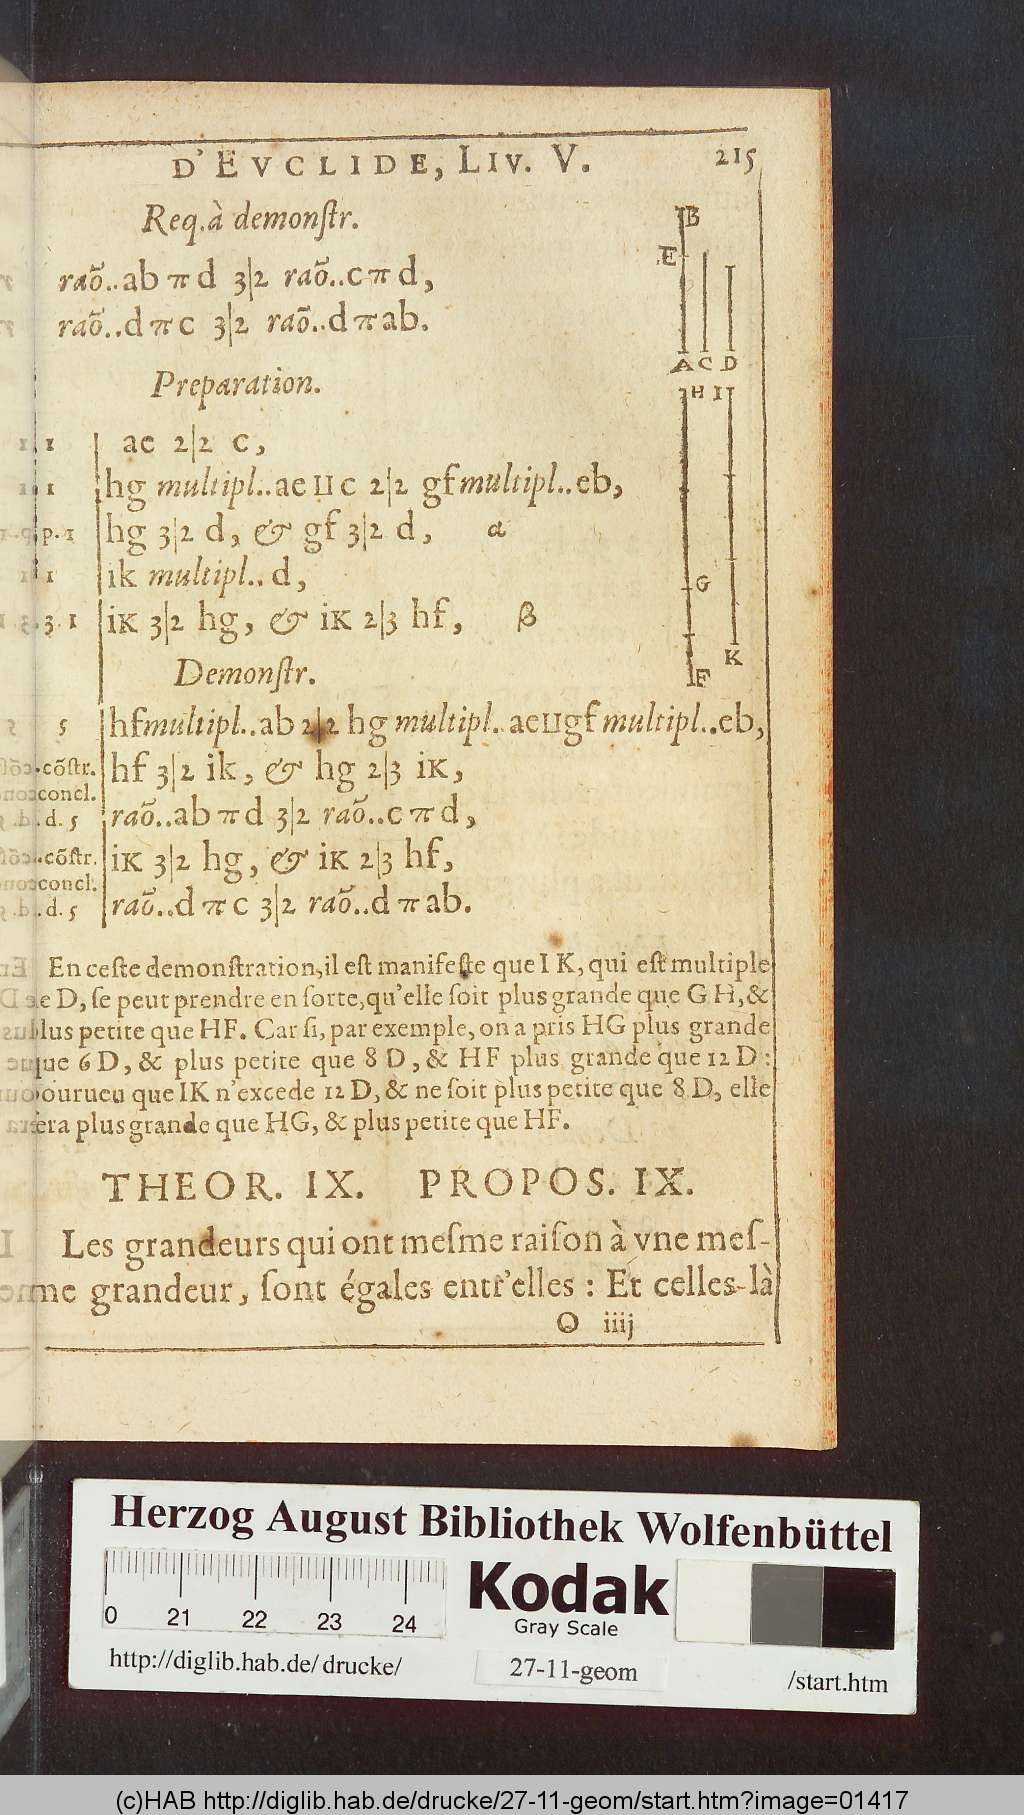 D'EVCLIDE, LIV. V. 215
Req. à demonſtr.
raõ..ab π d 3|2 raõ..c π d,
raõ..d π c 3|2 raõ..d π ab.
B
E
A C D
Preparation.
H I
1. 1 ae 2|2 c,
1. 1 hg multipl..ae ⊔ c 2|2 gf multipl..eb,
p. 1 hg 3|2 d, & gf 3|2 d, α
1 ik multipl.. d,
G
3. 1 iK 3|2 hg, & iK 2|3 hf, β
K
F
Demonſtr.
5 hf multipl..ab 2|2 hg multipl. ae⊔gf multipl..eb,
cõſtr. hf 3|2 ik, & hg 2|3 iK,
concl.
d. 5 raõ..ab π d 3|2 raõ..c π d,
cõſtr. iK 3|2 hg, & iK 2|3 hf,
concl.
d. 5 raõ..d π c 3|2 raõ..d π ab.
En ceſte demonſtration, il eſt manifeſte que I K, qui eſt multiple
e D, ſe peut prendre en ſorte, qu'elle ſoit plus grande que G H, &
lus petite que HF. Car ſi, par exemple, on a pris HG plus grande
ue 6 D, & plus petite que 8 D, & HF plus grande que 12 D:
ourueu que IK n'excede 12 D, & ne ſoit plus petite que 8 D, elle
era plus grande que HG, & plus petite que HF.
THEOR. IX. PROPOS. IX.
Les grandeurs qui ont meſme raiſon à vne meſ-
me grandeur, ſont égales entr'elles : Et celles-là
O iiij
Herzog August Bibliothek Wolfenbüttel
Kodak
Gray Scale
0 21 22 23 24
http://diglib.hab.de/drucke/ 27-11-geom /start.htm
(c)HAB http://diglib.hab.de/drucke/27-11-geom/start.htm?image=01417